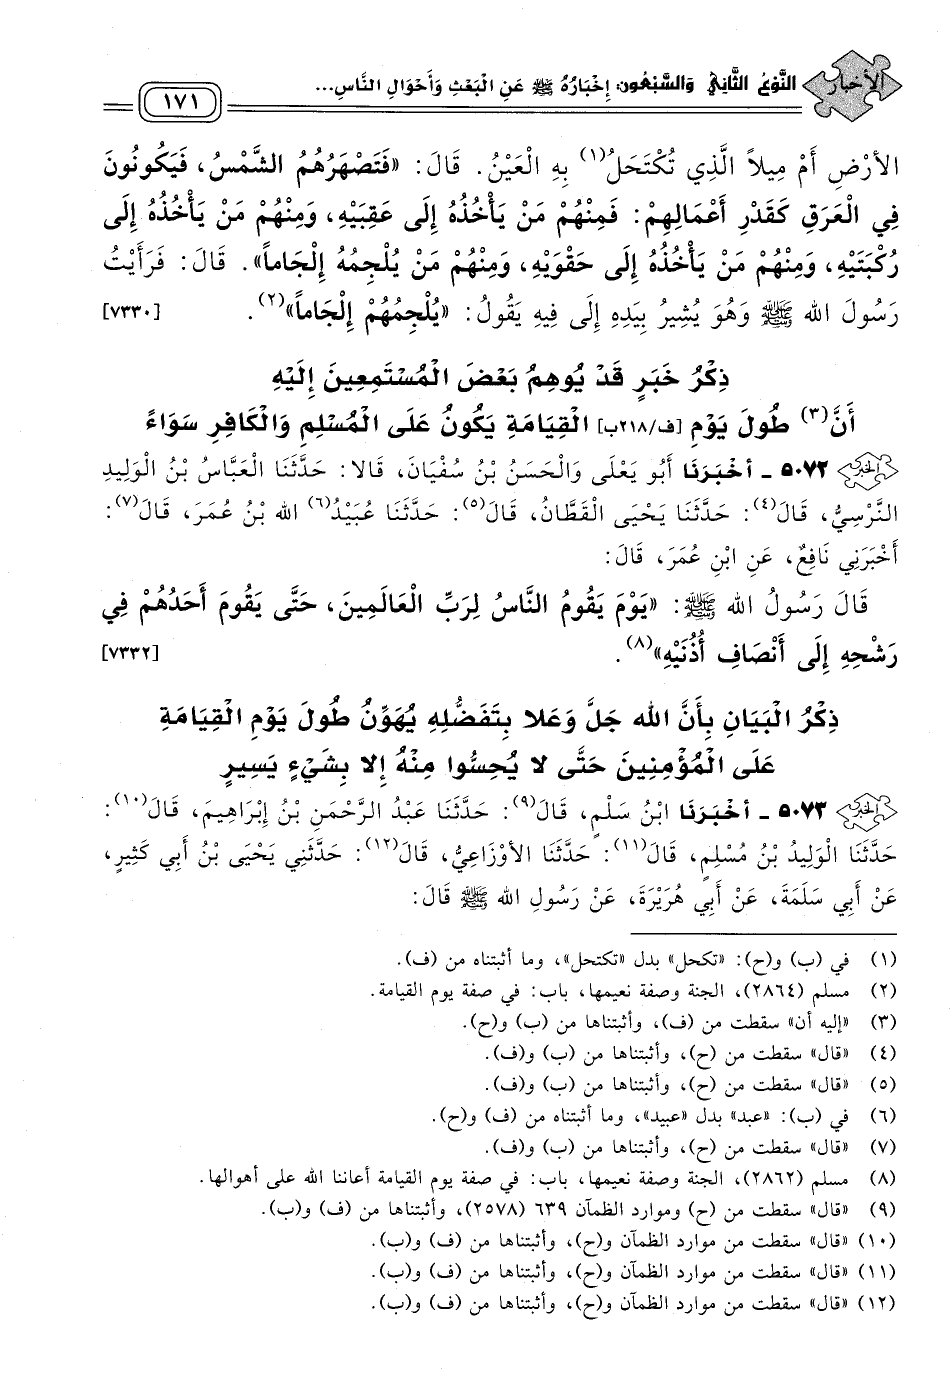 الأخبار
النَّوْعُ الثَّانِي وَالسَّبْعُون: إِخْبَارُهُ ﷺ عَنِ الْبَعْثِ وَأَحْوَالِ النَّاسِ...
١٧١
الأَرْضِ أَمْ مِيلاً الَّذِي تُكْتَحَلُ(١) بِهِ الْعَيْنُ. قَالَ: «فَتَصْهَرُهُمُ الشَّمْسُ، فَيَكُونُونَ
فِي الْعَرَقِ كَقَدْرِ أَعْمَالِهِمْ: فَمِنْهُمْ مَنْ يَأْخُذُهُ إِلَى عَقِبَيْهِ، وَمِنْهُمْ مَنْ يَأْخُذُهُ إِلَى
رُكْبَتَيْهِ، وَمِنْهُمْ مَنْ يَأْخُذُهُ إِلَى حَقْوَيْهِ، وَمِنْهُمْ مَنْ يُلْجِمُهُ إِلْجَاماً». قَالَ: فَرَأَيْتُ
رَسُولَ الله ﷺ وَهُوَ يُشِيرُ بِيَدِهِ إِلَى فِيهِ يَقُولُ: «يُلْجِمُهُمْ إِلْجَاماً»(٢). [٧٣٣٠]
ذِكْرُ خَبَرٍ قَدْ يُوهِمُ بَعْضَ الْمُسْتَمِعِينَ إِلَيْهِ
أَنَّ(٣) طُولَ يَوْمِ [ف/٢١٨ب] الْقِيَامَةِ يَكُونُ عَلَى الْمُسْلِمِ وَالْكَافِرِ سَوَاءً
٥٠٧٢ - أَخْبَرَنَا أَبُو يَعْلَى وَالْحَسَنُ بْنُ سُفْيَانَ، قَالا: حَدَّثَنَا الْعَبَّاسُ بْنُ الْوَلِيدِ
النَّرْسِيُّ، قَالَ(٤): حَدَّثَنَا يَحْيَى الْقَطَّانُ، قَالَ(٥): حَدَّثَنَا عُبَيْدُ(٦) الله بْنُ عُمَرَ، قَالَ(٧):
أَخْبَرَنِي نَافِعٌ، عَنِ ابْنِ عُمَرَ، قَالَ:
قَالَ رَسُولُ الله ﷺ: «يَوْمَ يَقُومُ النَّاسُ لِرَبِّ الْعَالَمِينَ، حَتَّى يَقُومَ أَحَدُهُمْ فِي
رَشْحِهِ إِلَى أَنْصَافِ أُذُنَيْهِ»(٨). [٧٣٣٢]
ذِكْرُ الْبَيَانِ بِأَنَّ الله جَلَّ وَعَلا بِتَفَضُّلِهِ يُهَوِّنُ طُولَ يَوْمِ الْقِيَامَةِ
عَلَى الْمُؤْمِنِينَ حَتَّى لا يُحِسُّوا مِنْهُ إِلا بِشَيْءٍ يَسِيرٍ
٥٠٧٣ - أَخْبَرَنَا ابْنُ سَلْمٍ، قَالَ(٩): حَدَّثَنَا عَبْدُ الرَّحْمَنِ بْنُ إِبْرَاهِيمَ، قَالَ(١٠):
حَدَّثَنَا الْوَلِيدُ بْنُ مُسْلِمٍ، قَالَ(١١): حَدَّثَنَا الأَوْزَاعِيُّ، قَالَ(١٢): حَدَّثَنِي يَحْيَى بْنُ أَبِي كَثِيرٍ،
عَنْ أَبِي سَلَمَةَ، عَنْ أَبِي هُرَيْرَةَ، عَنْ رَسُولِ الله ﷺ قَالَ:
(١) في (ب) و(ح): «تكحل» بدل «تكتحل»، وما أثبتناه من (ف).
(٢) مسلم (٢٨٦٤)، الجنة وصفة نعيمها، باب: في صفة يوم القيامة.
(٣) «إليه أن» سقطت من (ف)، وأثبتناها من (ب) و(ح).
(٤) «قال» سقطت من (ح)، وأثبتناها من (ب) و(ف).
(٥) «قال» سقطت من (ح)، وأثبتناها من (ب) و(ف).
(٦) في (ب): «عبد» بدل «عبيد»، وما أثبتناه من (ف) و(ح).
(٧) «قال» سقطت من (ح)، وأثبتناها من (ب) و(ف).
(٨) مسلم (٢٨٦٢)، الجنة وصفة نعيمها، باب: في صفة يوم القيامة أعاننا الله على أهوالها.
(٩) «قال» سقطت من (ح) وموارد الظمآن ٦٣٩ (٢٥٧٨)، وأثبتناها من (ف) و(ب).
(١٠) «قال» سقطت من موارد الظمآن و(ح)، وأثبتناها من (ف) و(ب).
(١١) «قال» سقطت من موارد الظمآن و(ح)، وأثبتناها من (ف) و(ب).
(١٢) «قال» سقطت من موارد الظمآن و(ح)، وأثبتناها من (ف) و(ب).